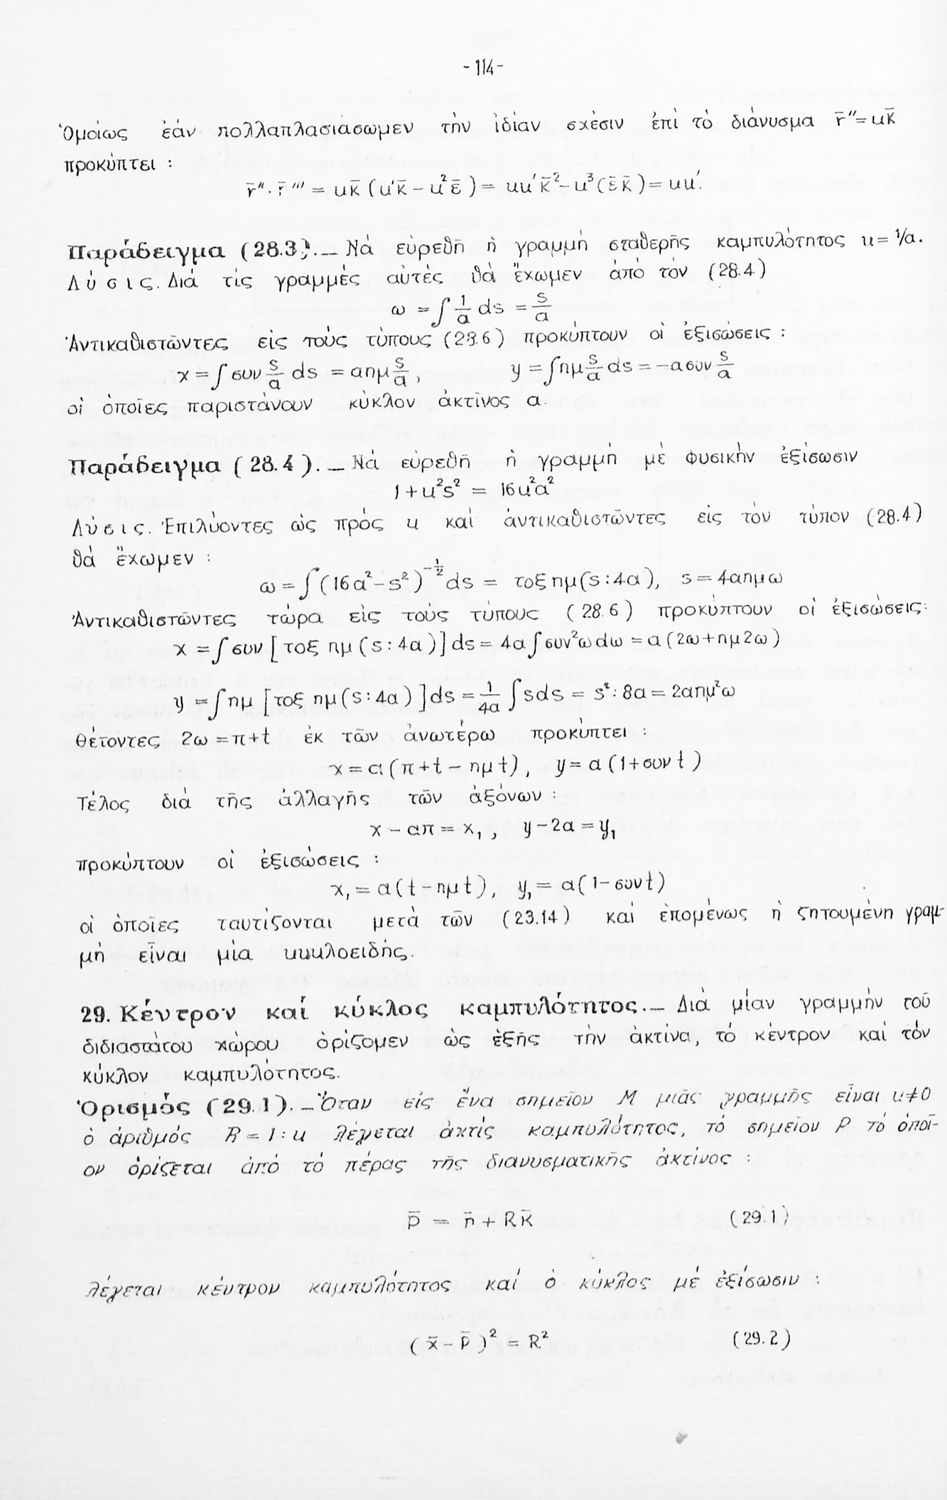 -114-
Ὁμοίως ἐάν πολλαπλασιάσωμεν τήν ἰδίαν σχέσιν ἐπί τό διάνυσμα r̄''= uκ̄
προκύπτει :
r̄''. r̄''' = uκ̄ (u'κ̄ - u²ε̄ ) = uu'κ̄²- u³(ε̄κ̄ )= uu'.
Παράδειγμα (28.3).— Νά εὑρεθῇ ἡ γραμμή σταθερῆς καμπυλότητος u= 1/α.
Λύσις. Διά τίς γραμμές αὐτές θά ἔχωμεν ἀπό τόν (28.4)
ω = ∫ 1/α ds = s/α
Ἀντικαθιστῶντες εἰς τούς τύπους (28.6) προκύπτουν οἱ ἐξισώσεις :
x = ∫ συν s/α ds = αημ s/α , y = ∫ημ s/α ds = -ασυν s/α
οἱ ὁποῖες παριστάνουν κύκλον ἀκτίνος α.
Παράδειγμα (28.4).— Νά εὑρεθῇ ἡ γραμμή μέ φυσικήν ἐξίσωσιν
1+u²s² = 16u²α²
Λύσις. Ἐπιλύοντες ὡς πρός u καί ἀντικαθιστῶντες εἰς τόν τύπον (28.4)
θά ἔχωμεν :
ω = ∫(16α²-s²)^-½ ds = τοξημ(s:4α), s=4αημω
Ἀντικαθιστῶντες τώρα εἰς τούς τύπους (28.6) προκύπτουν οἱ ἐξισώσεις:
x = ∫συν [τοξ ημ (s:4α)]ds = 4α∫συν²ωdω = α(2ω+ημ2ω)
y = ∫ημ [τοξ ημ(s:4α)]ds = 1/4α ∫sds = s²: 8α = 2αημ²ω
θέτοντες 2ω=π+t ἐκ τῶν ἀνωτέρω προκύπτει :
x = α(π+t - ημt), y= α(1+συνt)
Τέλος διά τῆς ἀλλαγῆς τῶν ἀξόνων :
x - απ = x₁ , y-2α = y₁
προκύπτουν οἱ ἐξισώσεις :
x₁= α(t-ημt), y₁ = α(1-συνt)
οἱ ὁποῖες ταυτίζονται μετά τῶν (23.14) καί ἑπομένως ἡ ζητουμένη γραμ-
μή εἶναι μία κυκλοειδής.
29. Κέντρον καί κύκλος καμπυλότητος.— Διά μίαν γραμμήν τοῦ
διδιαστάτου χώρου ὁρίζομεν ὡς ἑξῆς τήν ἀκτίνα, τό κέντρον καί τόν
κύκλον καμπυλότητος.
Ὁρισμός (29.1).—Ὅταν εἰς ἕνα σημεῖον Μ μιᾶς γραμμῆς εἶναι u≠0
ὁ ἀριθμός R = 1: u λέγεται ἀκτίς καμπυλότητος, τό σημεῖον P τό ὁποῖ-
ον ὁρίζεται ἀπό τό πέρας τῆς διανυσματικῆς ἀκτίνος :
p̄ = r̄ + Rκ̄ (29.1)
λέγεται κέντρον καμπυλότητος καί ὁ κύκλος μέ ἐξίσωσιν :
( x̄ - p̄ )² = R² (29.2)